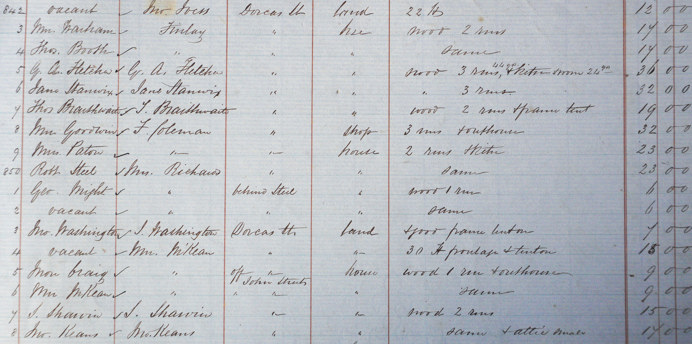 842 vacant Jno. Voss Dorcas St land 22 ft 12 00
3 Wm. Warham Finlay " hse wood 2 rms 14 00
4 Thos. Booth " " " same 14 00
5 G. A. Fletcher G. A. Fletcher " " wood 3 rms, & kitn 36 00
6 Jane Stanwix Jane Stanwix " " " 3 rms 32 00
7 Thos Braithwaite T. Braithwaite " " wood 2 rms & frame tent 19 00
8 Wm Goodwin F. Coleman " shop 3 rms & outhouse 32 00
9 Mrs. Paton " " house 2 rms & kitn 23 00
800 Robt. Steel Mrs. Richards " " same 23 00
1 Geo. Wright " behind Steel " wood 1 rm 6 00
2 vacant " " " same 6 00
3 Jno. Washington J. Washington Dorcas St land & good frame 7 00
4 vacant Wm. McKean " " 30 ft frontage & 15 00
5 Craig " off John Street house wood 1 rm & outhouse 9 00
6 Wm McKean " " " same 9 00
7 J. Shawin J. Shawin " " wood 2 rms 15 00
8 Jno. Keans Jno. Keans " " same & attic 17 00